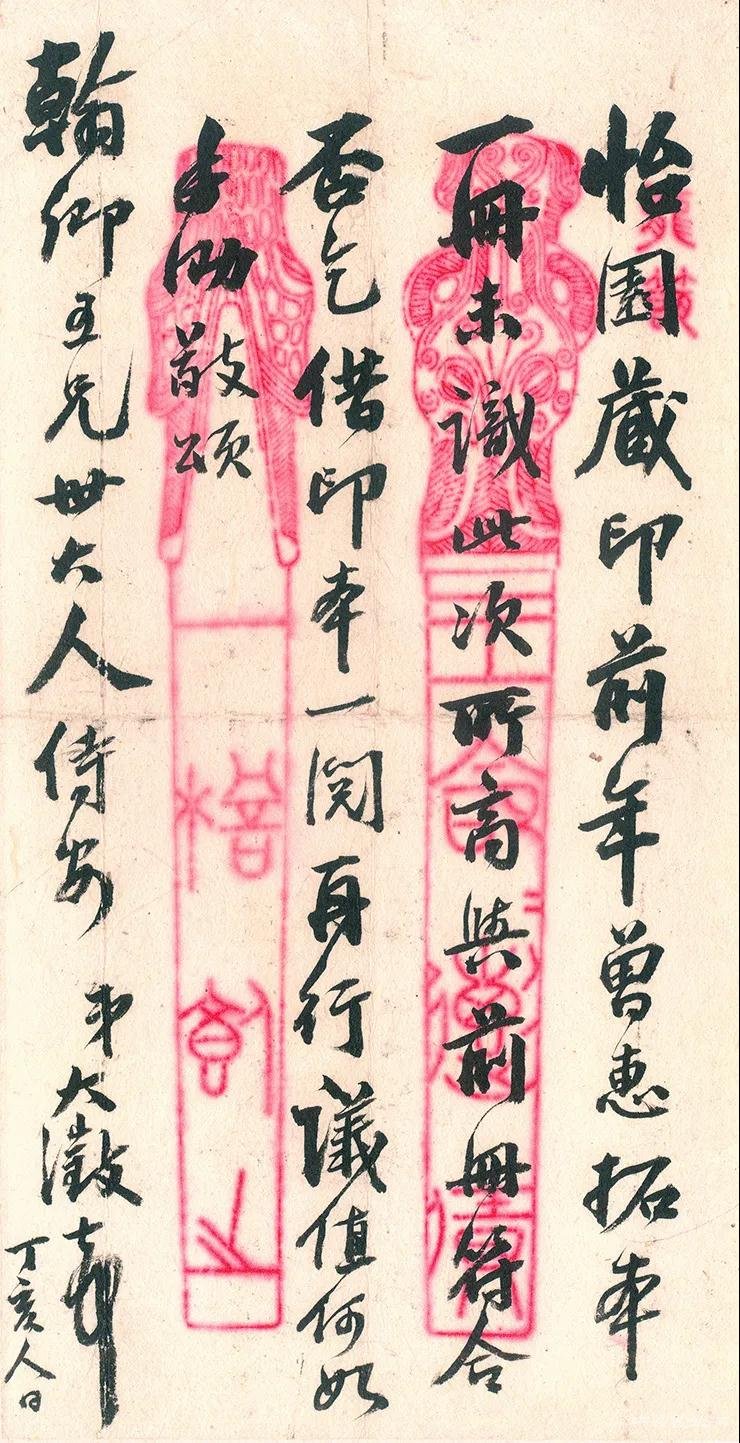 怡園藏印前年曾惠拓本
一冊未識此次所商與前冊符合
否乞借印本一閱再行議值何如
手泐敬頌
翰卿五兄世大人侍安
弟大澂
丁亥人日